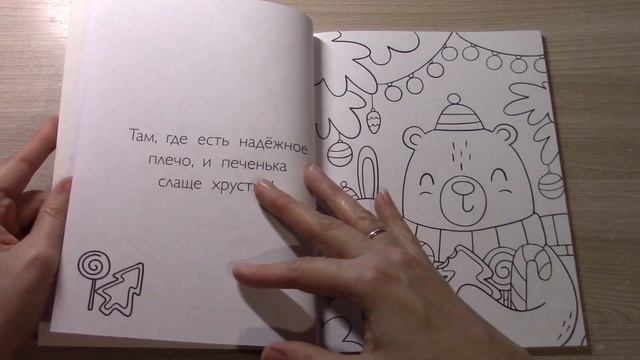 Там, где есть надёжное
плечо, и печенька
слаще